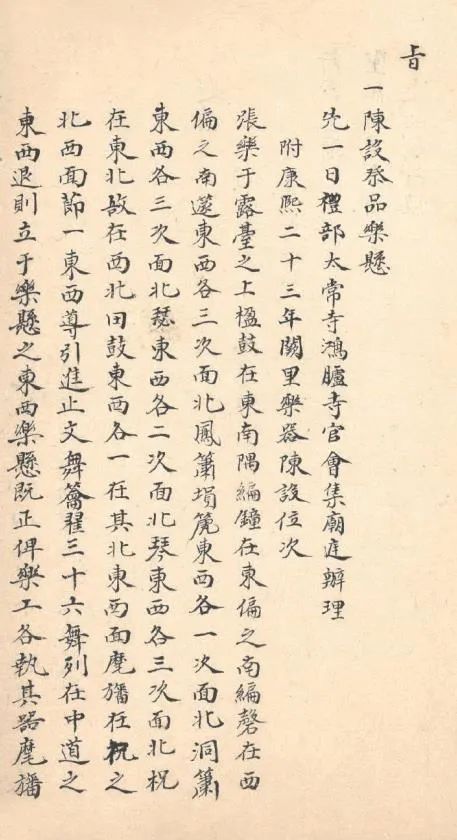 旨
一陳設祭品樂懸
先一日禮部太常寺鴻臚寺官會集廟庭辦理
附康熙二十三年闕里樂器陳設位次
張樂于露臺之上楹鼓在東南隅編鐘在東偏之南編磬在西
偏之南邃東西各三次面北鳳簫塤篪東西各一次面北洞簫
東西各三次面北瑟東西各二次面北琴東西各三次面北柷
在東北故在西北田鼓東西各一在其北東西面麾旛在柷之
北西面節一東西尊引進止文舞籥翟三十六舞列在中道之
東西退則立于樂懸之東西樂懸既正俾樂工各執其器麾旛